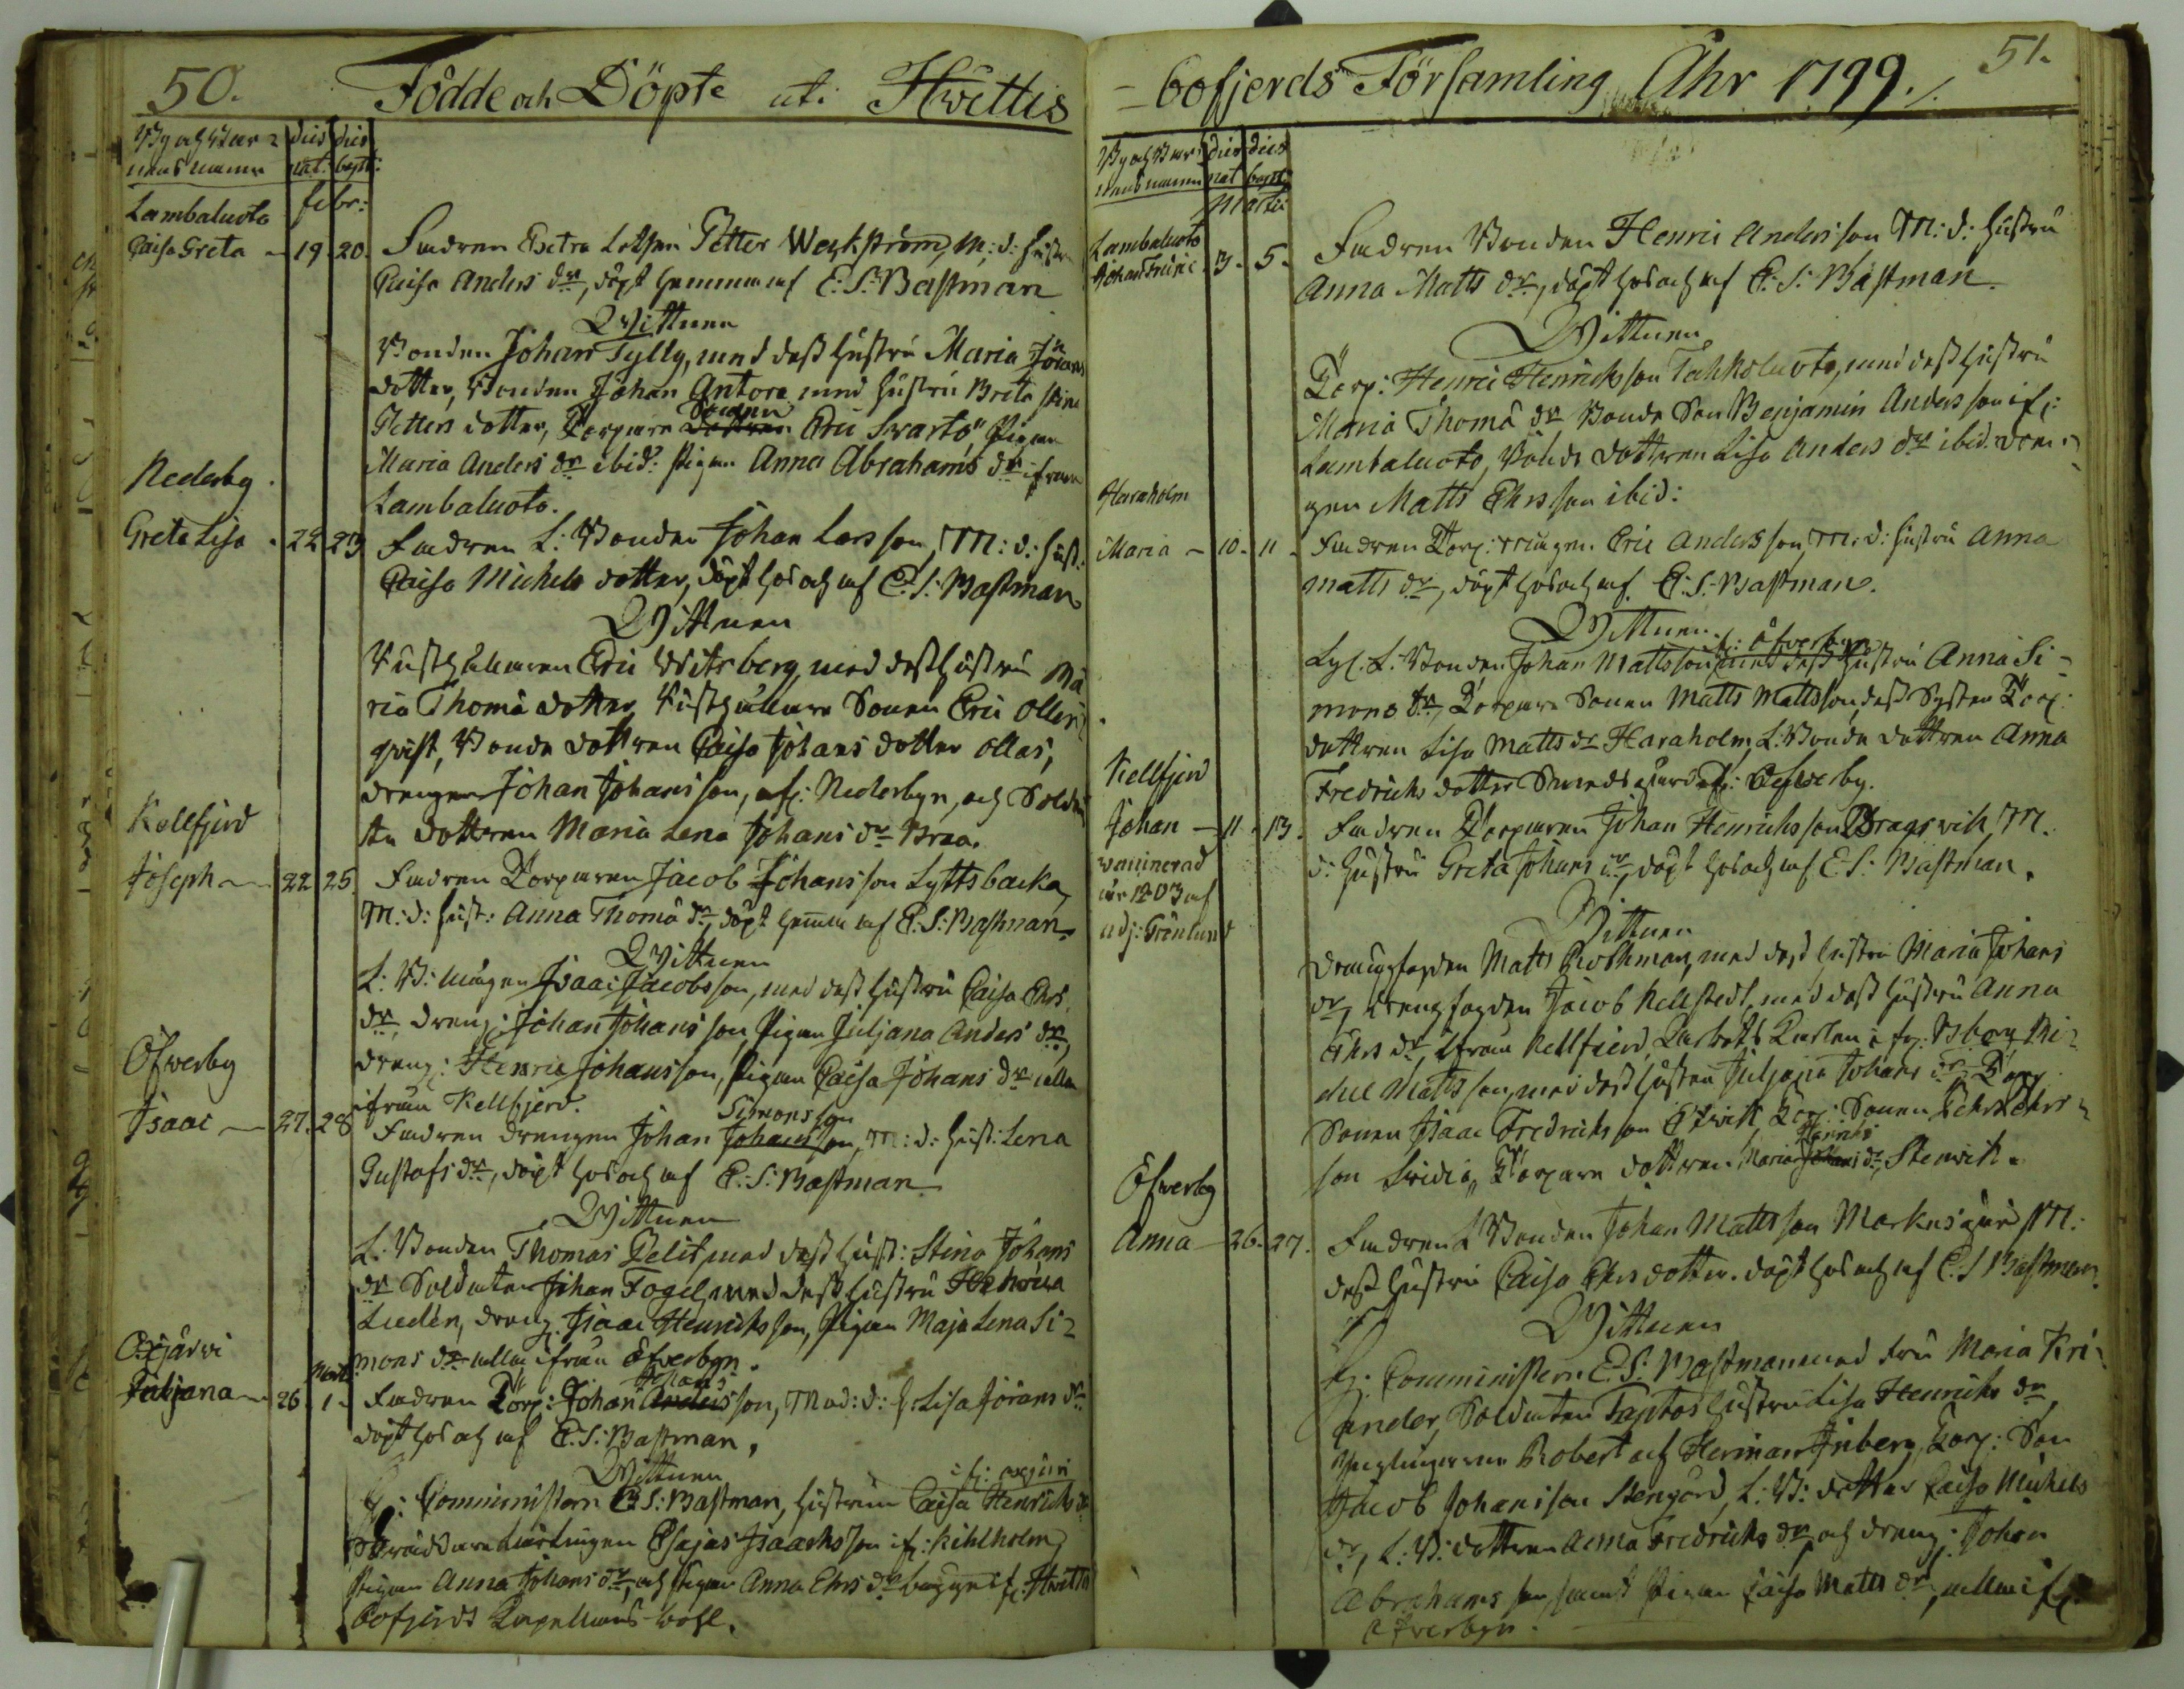 50.
Födde och Döpte uti Hvittis
By och Barnens namn
dies nat:
dies bapt:
febr:
Lambaluoto
Caisa Greta - 19. 20.
Fadren Extra Lotsen Petter Weckström, M: d: Hustru
Caisa Anders dr, döpt hemma af E: S: Bastman
Wittnen
Bonden Johan Tylly, med dess hustru Maria Jörans
dotter, Bonden Johan Antora med hustru Brita Stina
Petters dotter, Torpare Sonen Eric Svartö, Pigan
Maria Anders dr ibid: Pigan Anna Abrahams dr ifrån
Lambaluoto.
Nederby
Greta Lisa - 22 23
Fadren L: Bonden Johan Larsson, M: d: Hust:
Caisa Michels dotter, döpt hos och af E. S. Bastman
Wittnen
Busthållaren Eric Witsberg med dess hustru Ma
ria Thomæ dotter, Busthållare Sonen Eric Ollen
qvist, Bonde dottren Caisa Johans dotter Ollas,
drengen Johan Johansson, af: Nederbyn, och Solda
te dottren Maria Lena Johans dr Braa.
Kellfjerd
Joseph - 22 25.
Fadren Torparen Jacob Johansson Lyttsbacka,
M: d: hust: Anna Thomæ dr, döpt hemma af E: S: Bastman.
Wittnen
L: B: mågen Isaac Jacobsson, med dess hustru Caisa Ehrs
dr, dreng: Johan Johansson, Pigan Juljana Anders dr,
dreng: Henric Johansson, Pigan Caisa Johans dr alla
ifrån Kellfjerd.
Öfverby
Isaac - 27. 28
Fadren drengen Johan Simonsson, M: d: hust: Lena
Gustafs dr, döpt hos och af E: S: Bastman
Wittnen
L: Bonden Thomas Pelit med dess hust: Stina Johans
dr Soldaten Johan Fogel, med dess hustru Helena
Ludén, dreng Isaac Henrichsson, Pigan Maja Lena Si-
mons dr alla ifrån Öfverbyn.
Oxjärvi
Juljana - 26
Mart: 1.
Fadren Torp: Johan Johansson, Mod: d: h: Lisa Jörans dr
döpt hos och af E. S: Bastman,
Wittnen
H: Comministern E S: Bastman, hustrun Caisa Henrichs dr
if: oxjärvi
Skräddare Lärlingen Esajas Isaachsson if: Kihlholm,
Pigan Anna Johans dr, och Pigan Anna Ehrs dr begge if: Hvittis
bofjerds Capellans-bohl.
-bofjerds Församling Åhr 1799.
51.
By och Barnens namn
dies nat
dies bapt:
Martii
Lambaluoto
Johan Fridric - 3. 5.
Fadren Bonden Henric Andersson M: d: Hustru
Anna Matts dr, döpt hos och af E: S: Bastman.
Wittnen
Torp: Henric Henrichsson Tahkoluoto, med dess hustru
Maria Thomæ dr Bonde Son Benjamin Andersson if:
Lambaluoto, Bonde dottren Lisa Anders dr ibid. dren-
gen Matts Ehrsson ibid:
Haraholm
Maria - 10. 11.
Fadren Torp: mågen Eric Andersson, M: d: hustru Anna
Matts dr, döpt hos och af E: S: Bastman.
Wittnen
L: Bonden Johan Mattsson if: Öfverbyn med dess hustru Anna Si-
mons dr, Torpare Sonen Matts Mattsson, dess Syster Torp:
dottren Lisa Matts dr Haraholm, L: Bonde dottren Anna
Fredrichs dotter Smeds if: Öfverby.
Kellfjerd
Johan - 11. 13.
vaccinerad
år 1803 af
adj: Grönlund
Fadren Torparen Johan Henrichsson Dragsvik, M.
d: hustru Greta Johans dr, döpt hos och af E. S: Bastman.
Wittnen
Drengfogden Matts Rothman, med dess hustru Maria Johans
dr, drengfogden Jacob Kellstedt, med dess hustru Anna
Ehrs dr, ifrån Kellfjerd, Arbets Karlen if: Mi-
chel Mattsson, med dess hustru Juljana Johans dr, Torp:
Sonen Isaac Fredrichsson Ekvik, Torp: Sonen Ehrs Ehrs-
son Svidiö, Torpare dottren Maria Henrichs dr, Stenvik.
Öfverby
Anna - 26. 27.
Fadren L Bonden Johan Mattsson Markusgård M:
dess hustru Caisa Ehrs dotter. döpt hos och af E. S Bastman.
Wittnen
H: Comministern E: S: Bastman med Fru Maria Kri-
ander, Soldaten Taptos hustru Lisa Henrichs dr,
Ynglingarne Robert och Herman Inberg, Torp: Son
Jacob Johansson Stengård, L: B: dotter Caisa Michels
dr, L: B: dottren Anna Fredrichs dr och dreng: Johan
Abrahamsson, samt Pigan Caisa Matts dr, alla if:
Öfverbyn.